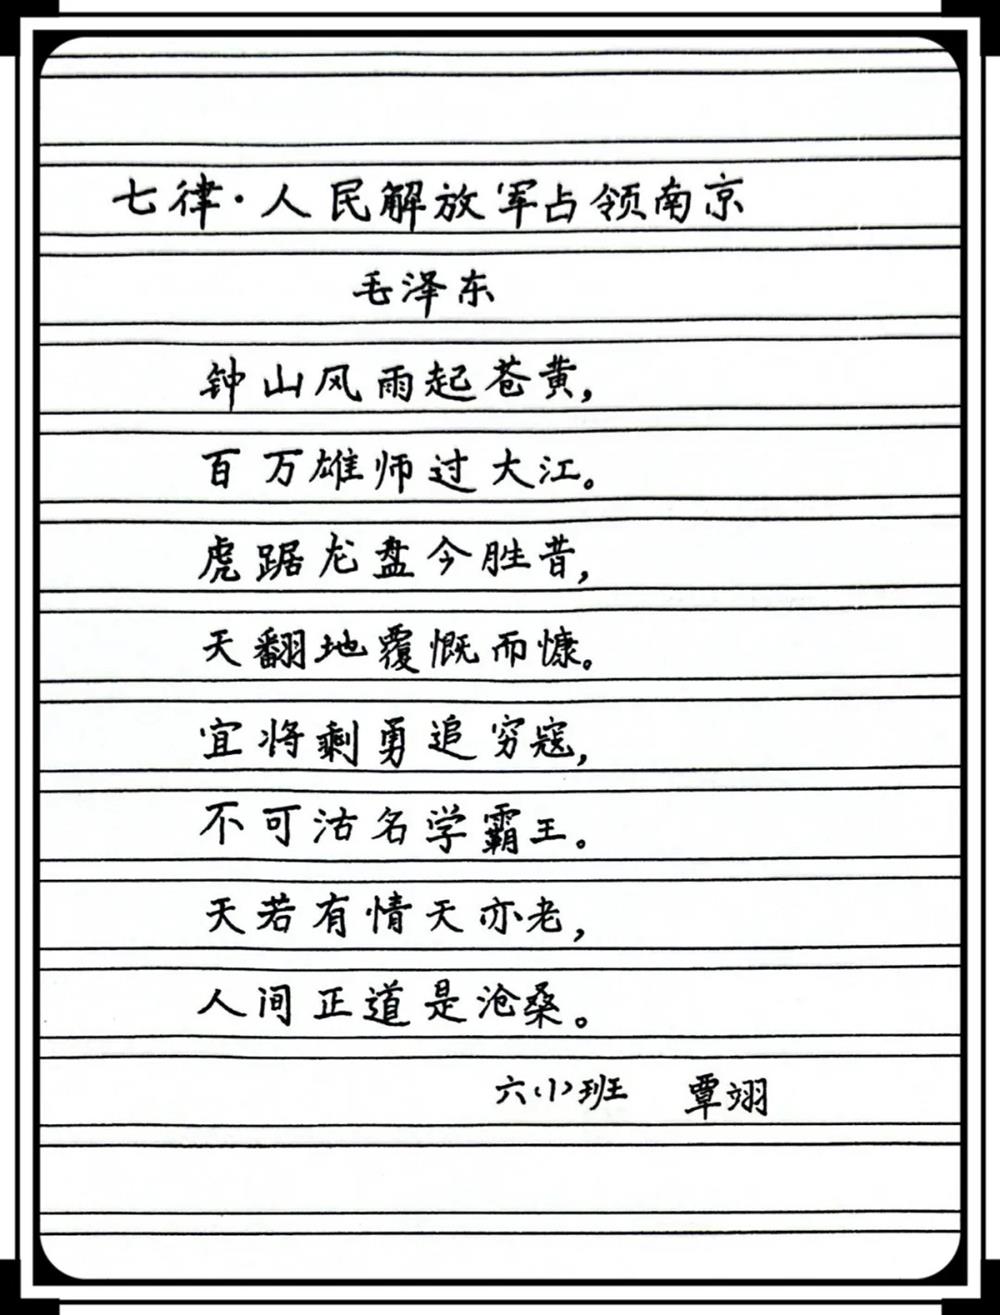 七律·人民解放军占领南京
毛泽东
钟山风雨起苍黄，
百万雄师过大江。
虎踞龙盘今胜昔，
天翻地覆慨而慷。
宜将剩勇追穷寇，
不可沽名学霸王。
天若有情天亦老，
人间正道是沧桑。
六(1)班 覃翊